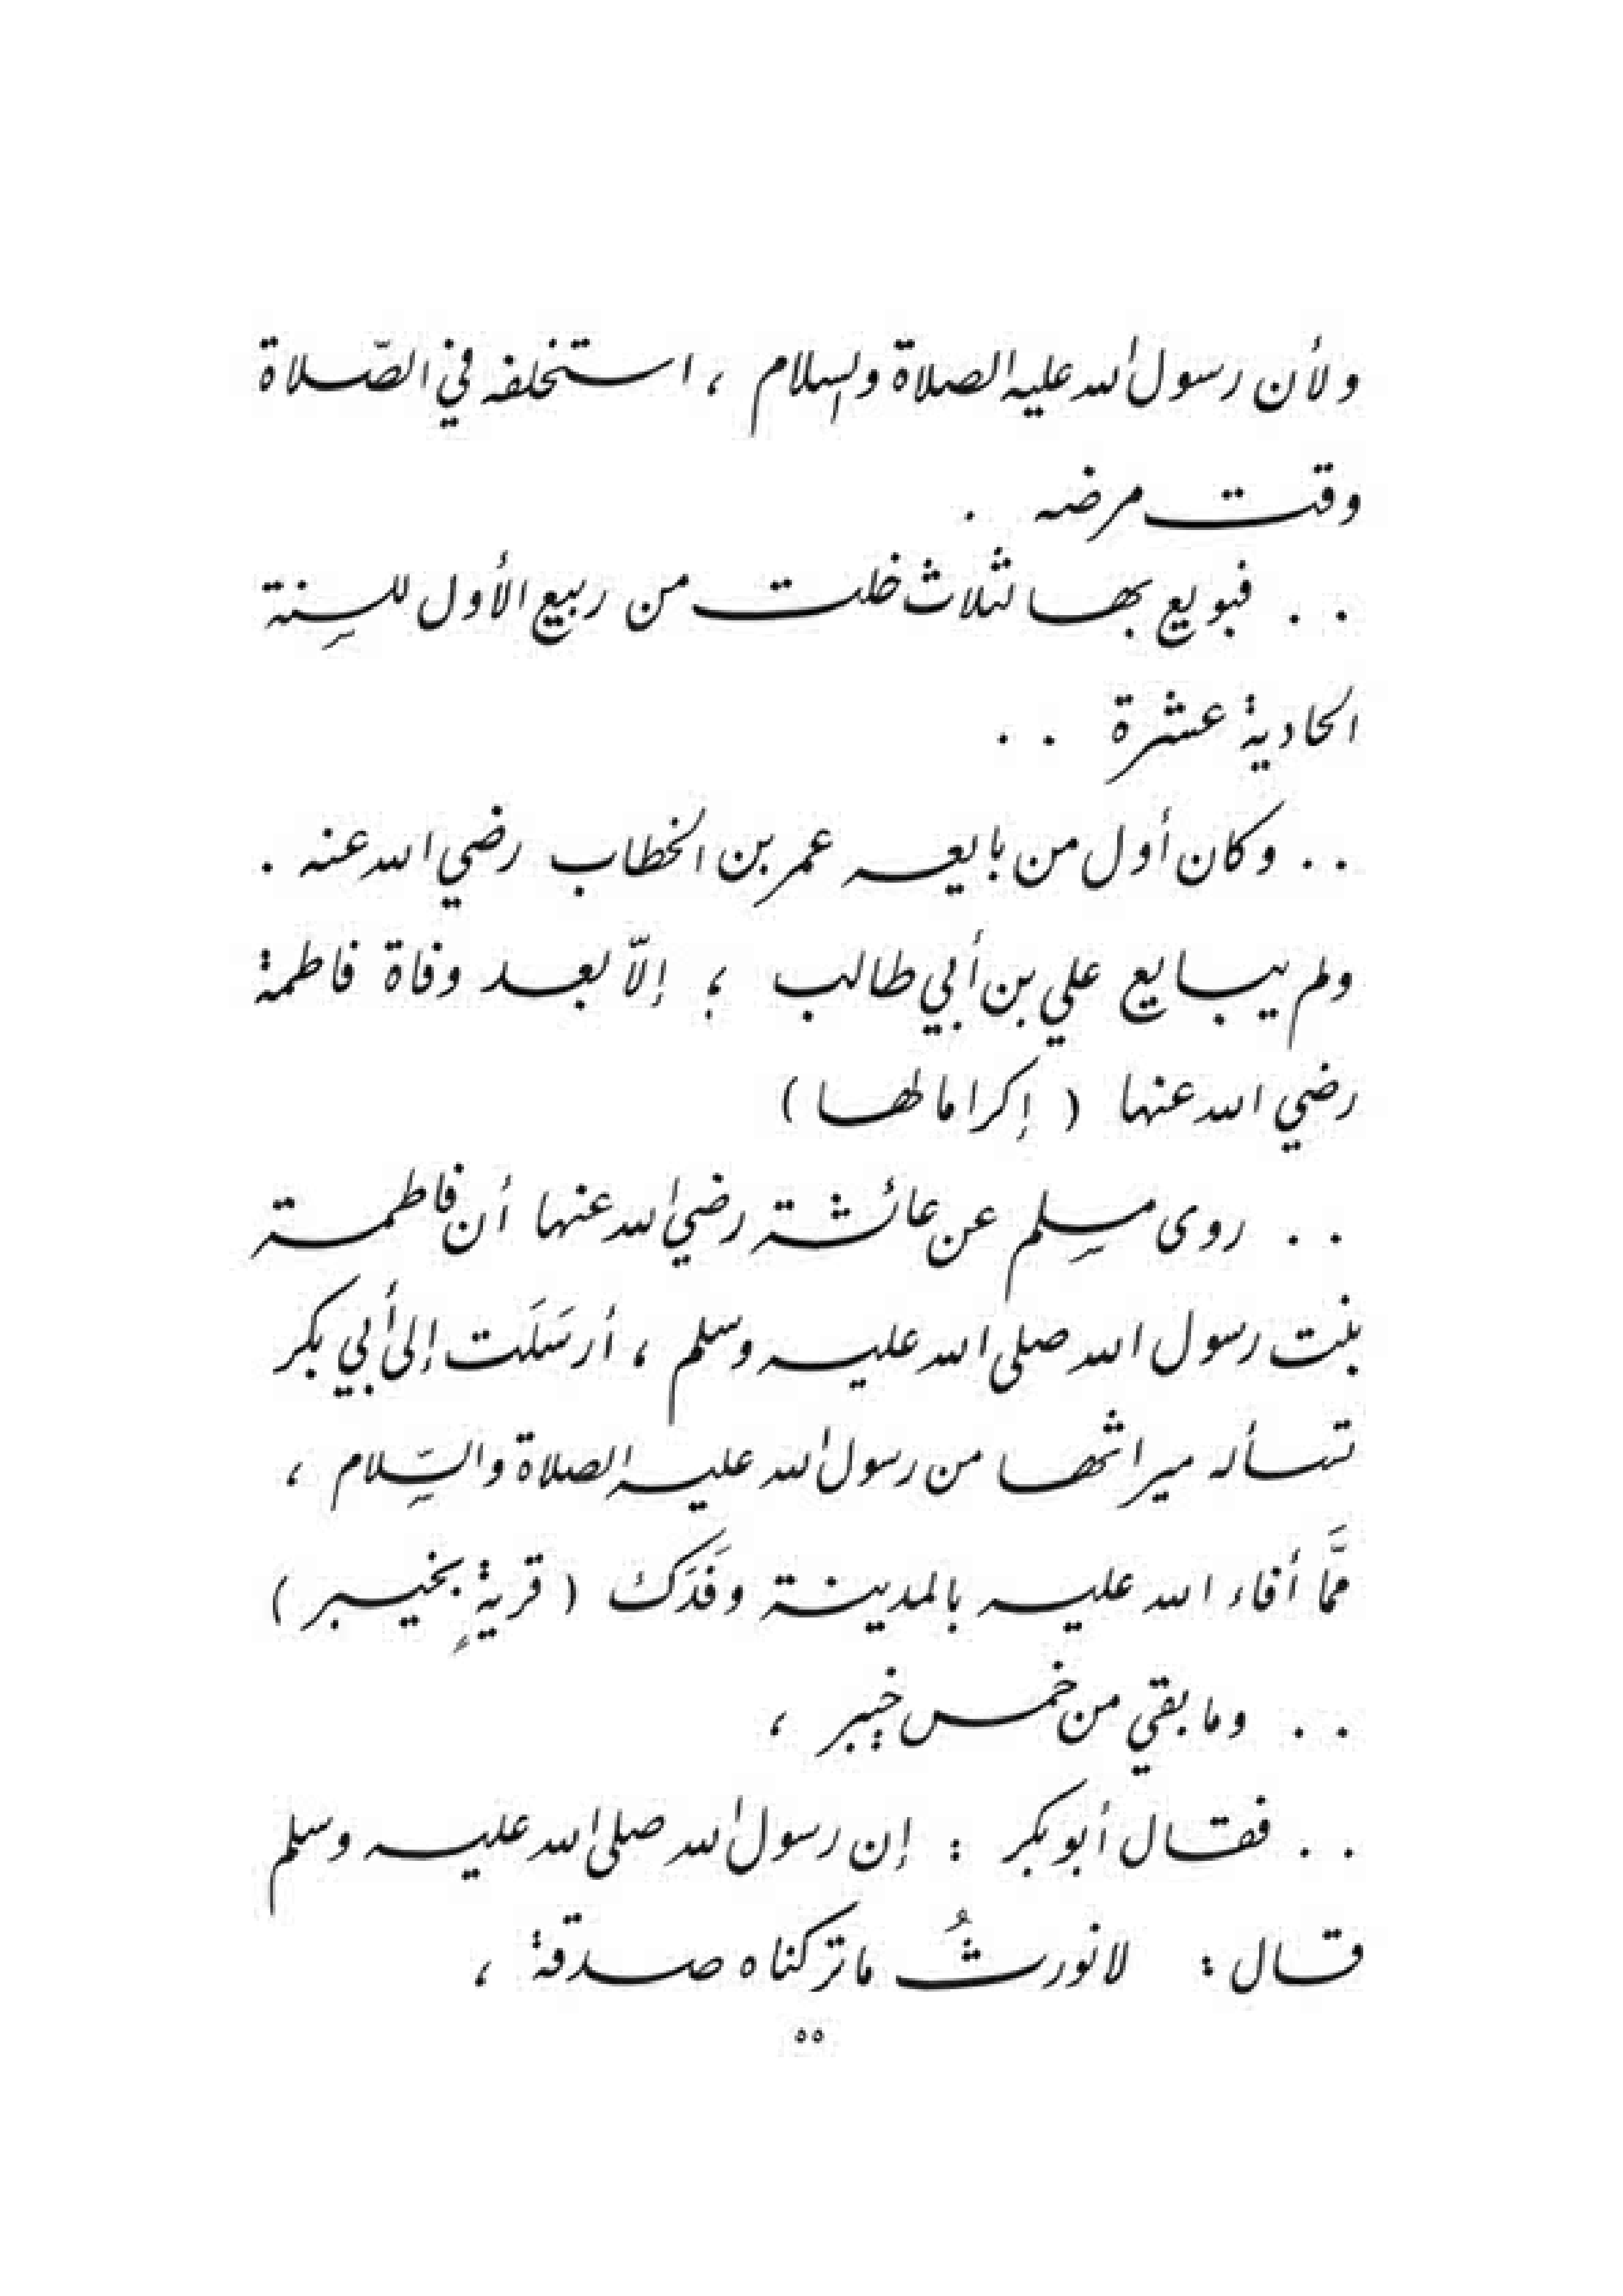 ولأن رسول الله عليه الصلاة والسلام ، استخلفه في الصّلاة
وقت مرضه .
. . فبويع بها لثلاث خلت من ربيع الأول للسنة
الحادية عشرة . .
. . وكان أول من بايعه عمر بن الخطاب رضي الله عنه .
ولم يبايع علي بن أبي طالب ؛ إلاّ بعد وفاة فاطمة
رضي الله عنها ( إكراما لها )
. . روى مسلم عن عائشة رضي الله عنها أن فاطمة
بنت رسول الله صلى الله عليه وسلم ، أرسَلَت إلى أبي بكر
تسأله ميراثها من رسول الله عليه الصلاة والسّلام ،
ممَّا أفاء الله عليه بالمدينة وفَدَك ( قريةٍ بخيبر )
. . وما بقي من خمس خيبر ،
. . فقال أبو بكر : إن رسول الله صلى الله عليه وسلم
قال : لا نورثُ ما تركناه صدقة ،
٥٥